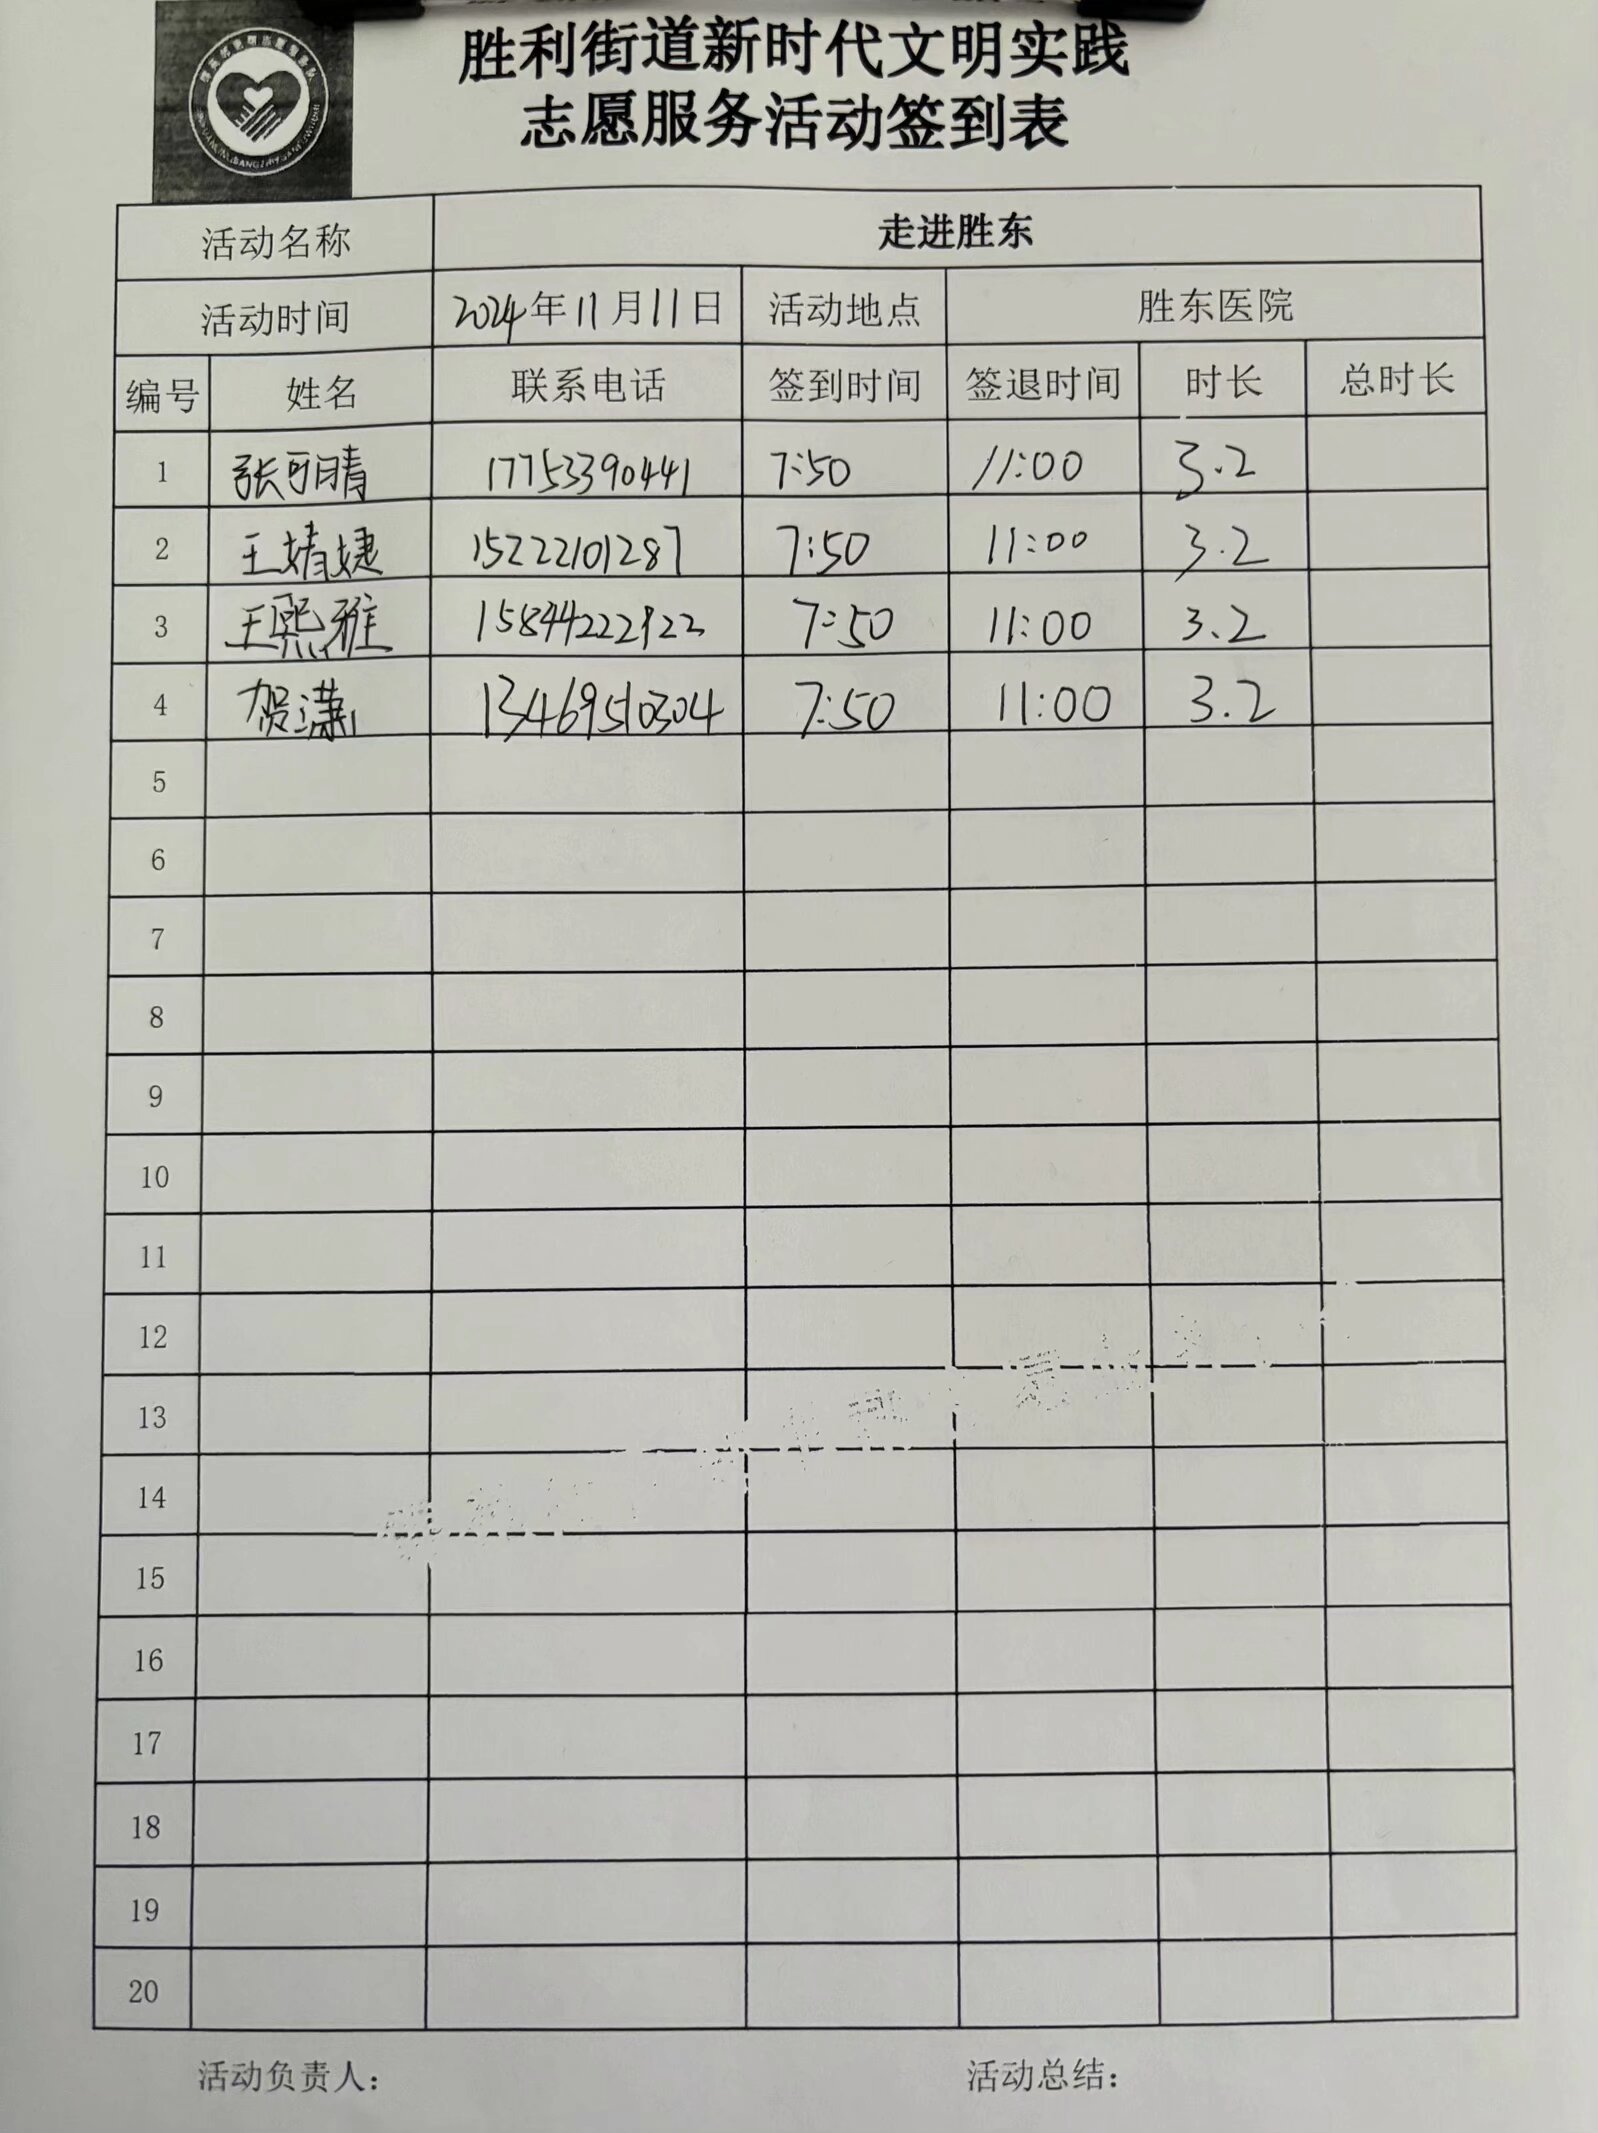 胜利街道新时代文明实践
志愿服务活动签到表
活动名称 走进胜东
活动时间 2024年11月11日 活动地点 胜东医院
编号 姓名 联系电话 签到时间 签退时间 时长 总时长
1 张明晴 17753390441 7:50 11:00 3.2
2 王婧婕 15222101287 7:50 11:00 3.2
3 王熙雅 15844222922 7:50 11:00 3.2
4 贺潇 13469510304 7:50 11:00 3.2
5
6
7
8
9
10
11
12
13
14
15
16
17
18
19
20
活动负责人： 活动总结：